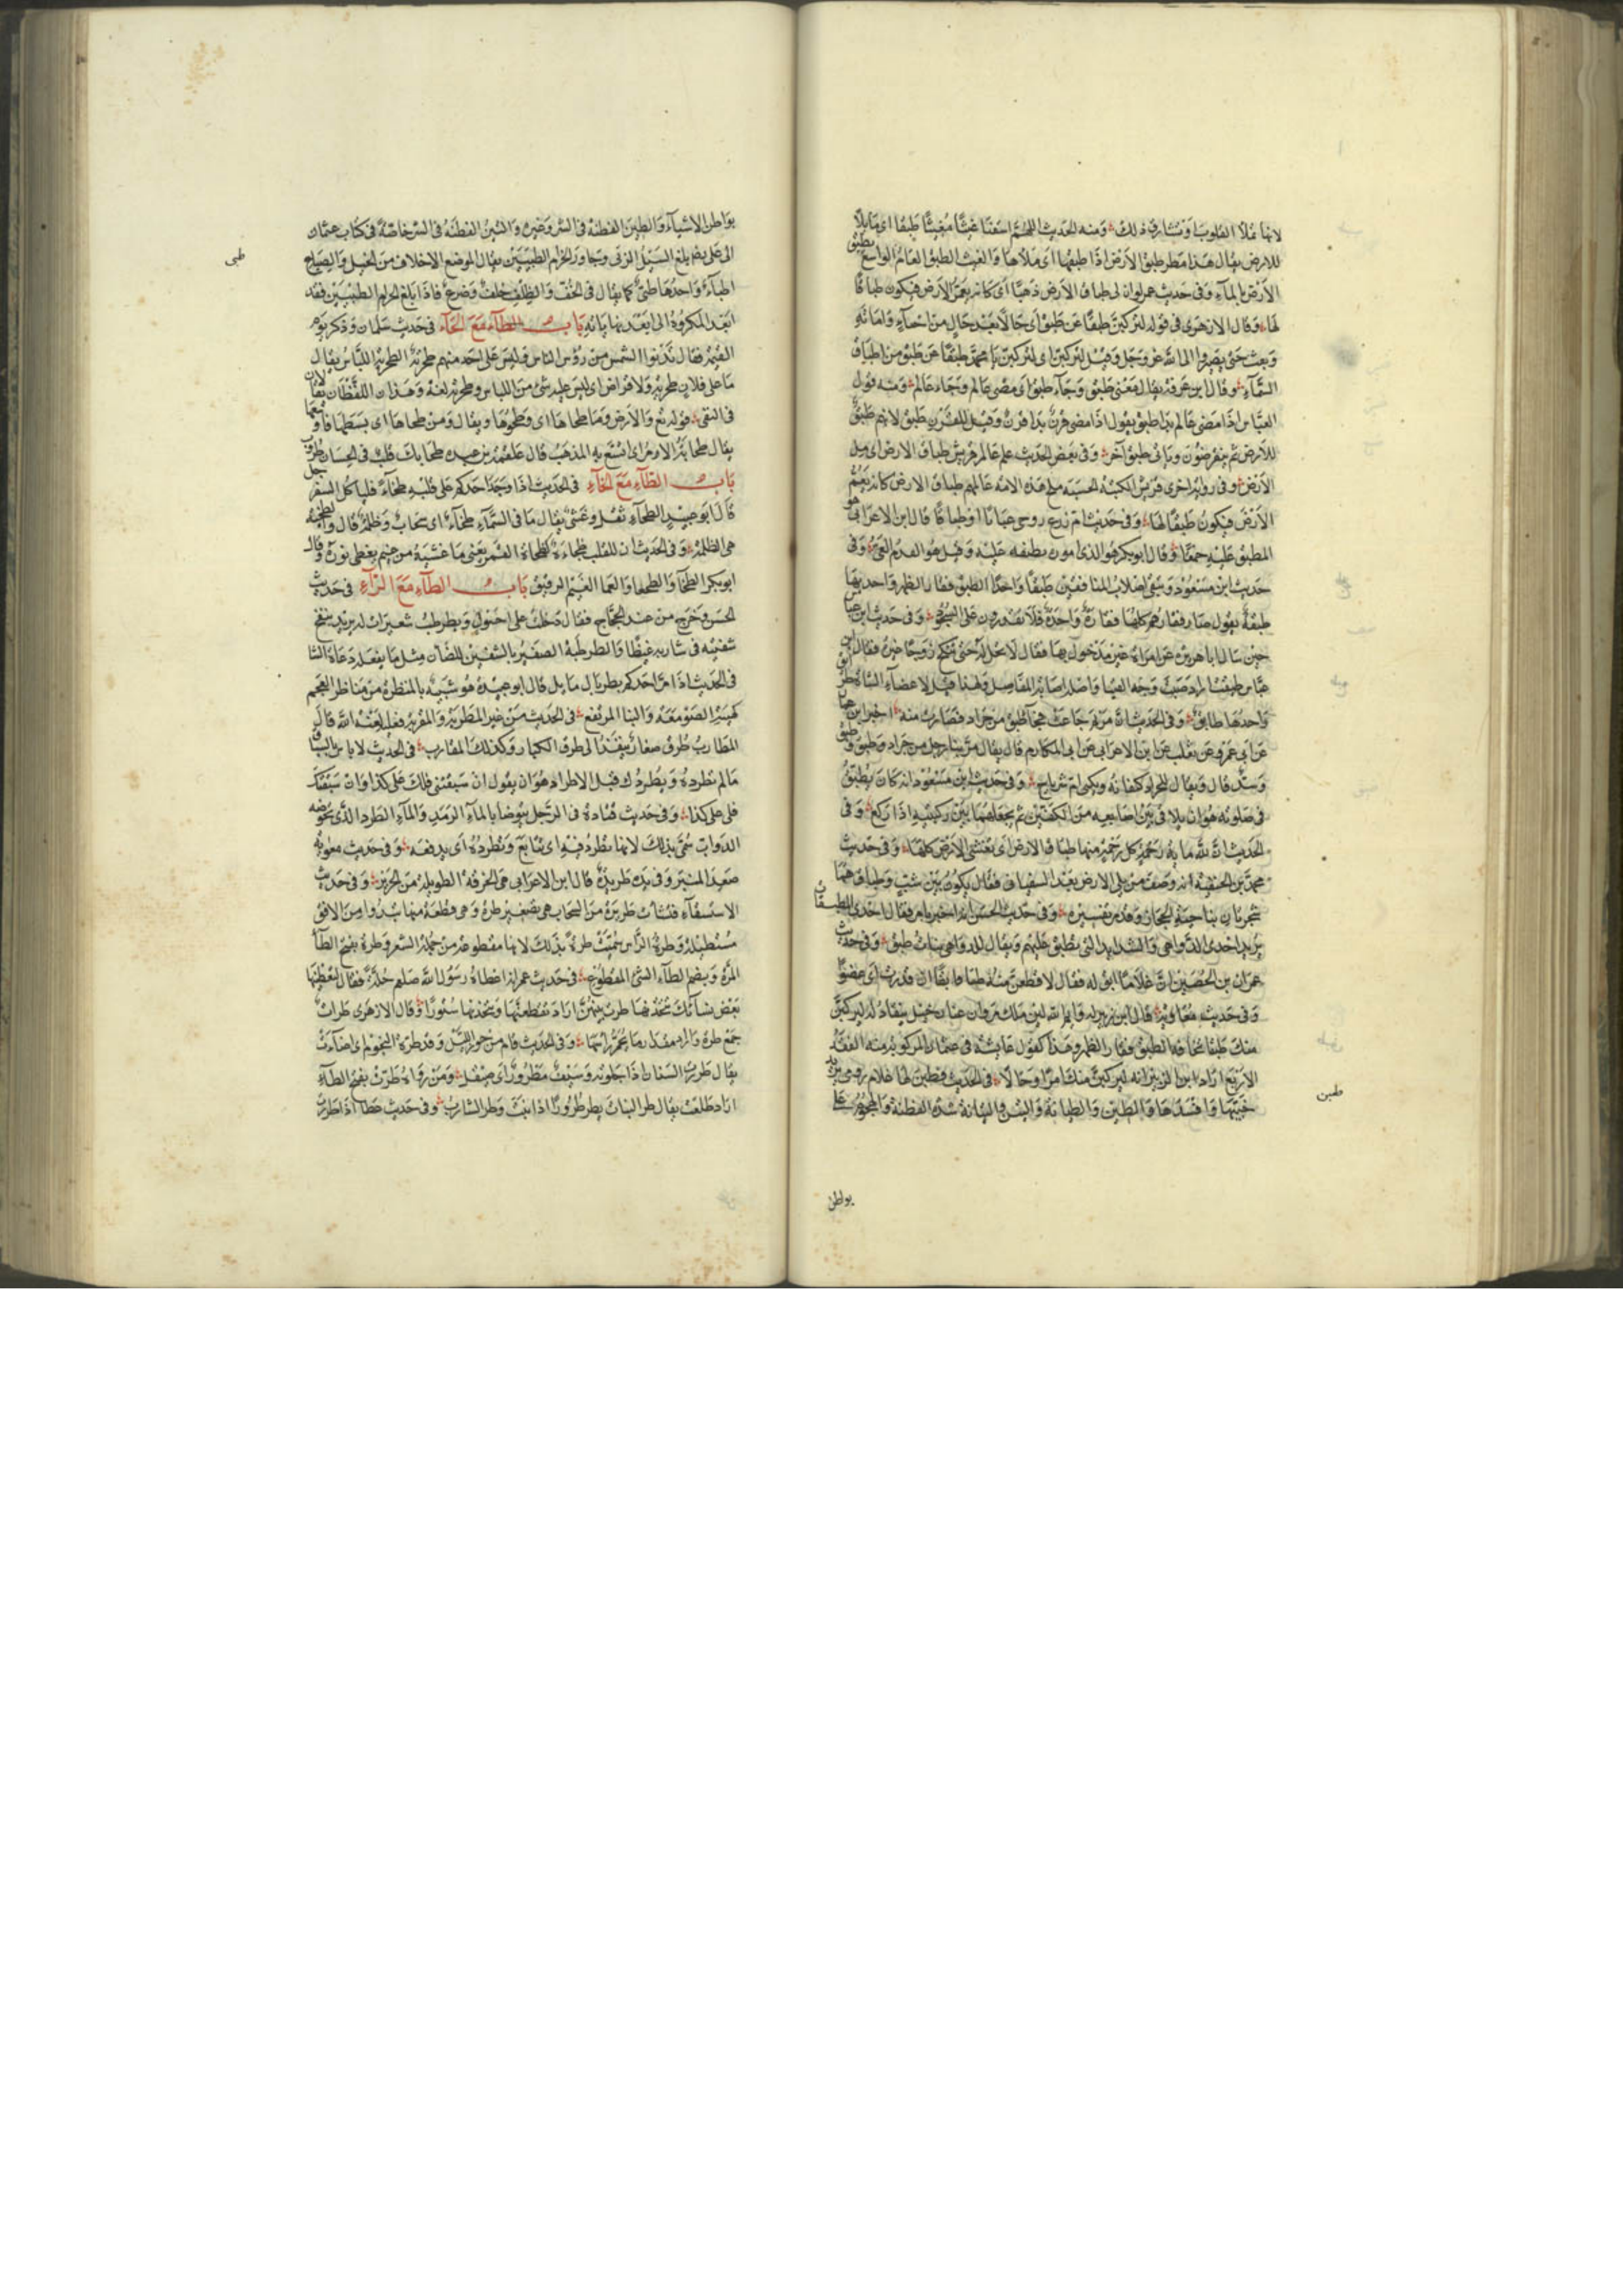 لانها تملأ القلوب او تشارق ذلك ومنه الحديث اللهم اسقنا غيثا مغيثا طبقا اى مالئا
للارض يقال هذا مطر طبق الارض اذا طبقها اى ملأها والغيث الطبق العام الواسع يطبق
الارض بالماء وفى حديث عمر لوان لى طباق الارض ذهبا اى كانه يعم الارض فيكون طباقا
لها وقال الازهرى فى قوله لتركبن طبقا عن طبق اى حالا بعد حال من احياء واماتة
وبعث حتى يصيروا الى الله عز وجل وقيل لتركبن اى لتركبن يا محمد طبقا عن طبق من اطباق
السماء وقال ابن عرفة يقال مضى طبق وجاء طبق اى مضى عالم وجاء عالم ومنه قول
العباس اذا مضى عالم بدا طبق يقول اذا مضى قرن بدا قرن وقيل للقرن طبق لانهم طبق
للارض ثم ينقرضون وياتى طبق آخر وفى بعض الحديث علم عالم قريش طباق الارض اى ملء
الارض وفى رواية اخرى قريش الكتبة الحسبة ملح هذه الامة علم عالمهم طباق الارض كانه يعم
الارض فيكون طبقا لها وفى حديث ام زرع زوجى عياياء او طباقاء قال ابن الاعرابى هو
المطبق عليه حمقا وقال ابو بكر هو الذى امور مطبقة عليه وقيل هو الفدم العى وفى
حديث ابن مسعود وتبقى اصلاب المنافقين طبقا واحدا الطبق فقار الظهر واحدتها
طبقة يقول صار فقارهم كلها فقارة واحدة فلا يقدرون على السجود وفى حديث ابن عباس
حين سال ابا هريرة عن امراة غير مدخول بها فقال لا تحل له حتى تنكح زوجا غيره فقال ابن
عباس طبقت اراد اصبت وجه الفتيا واصله اصابة المفاصل ولهذا قيل لاعضاء الشاة طوابق
واحدها طابق وفى الحديث ان مريم جاعت فجاء طبق من جراد فصادت منه اخبرنا ابن عمار
عن ابى عمر وعن ثعلب عن ابن الاعرابى عن ابى المكارم قال يقال مر بنا رجل من جراد وطبق وطبق
وسد قال ويقال للجراد كفانه ويكنى ام رياح وفى حديث ابن مسعود انه كان يطبق
فى صلوته هو ان يلاقى بين اصابعه من الكفين ثم يجعلهما بين ركبتيه اذا ركع وفى
الحديث ان لله مائة رحمة كل رحمة منها طباق الارض اى تغشى الارض كلها وفى حديث
محمد بن الحنفية انه وصف من يلى الارض بعد السفيانى فقال يكون بين شث وطباق هما
شجرتان بناحية الحجاز وقد مر تفسيره وفى حديث الحسن انه اخبر بامر فقال احدى المطبقات
يريد احدى الدواهى والشدايد التى تطبق عليهم ويقال للدواهى بنات طبق وفى حديث
عمران بن الحصين ان غلاما ابق له فقال لاقطعن منه طابقا ان قدرت اى عضوا
وفى حديث معاوية قال ابن الزبير له وايم الله لئن ملك مروان عنان خيل ينقاد له ليركبن
منك طبقا تخافه الطبق فقار الظهر وهذا كقول عائشة فى عثمان المركوبة منه الفقر
الاربع اراد ابن الزبير انه ليركبن منك امرا وحالا فى الحديث فطبن لها غلام رومى يريد
خيبها وافسدها والطبن والطبانة والتبن والتبانة شدة الفطنة والهجوم على
طبن
بواطن
بواطن الاشياء والطبن الفطنة فى الشر وغيره والتبن الفطنة فى الشر خاصة فى كتاب عثمان
الى على بلغ السيل الزبى وجاوز الحزام الطبيين يقال لموضع الاخلاف من الخيل والسباع
طبى
اطباء واحدها طبى كما يقال فى الخف والظلف خلف وضرع فاذا بلغ الحزام الطبيين فقد
ابعد المكروه الى ابعد نهاياته باب الطاء مع الحاء فى حديث سلمان وذكر يوم
القيمة فقال تدنوا الشمس من رؤس الناس وليس على احد منهم طحربة الطحربة اللباس يقال
ما على فلان طحربة ولا قراض اى ليس عليه شىء من اللباس وطحربة لغة وهذان اللفظان يقالان
فى النفى قوله تع والارض وما طحاها اى وطحوها ويقال ومن طحاها اى بسطها فاوسعها
يقال طحا به الامر اى اتسع به المذهب قال علقمة بن عبدة طحا بك قلب فى الحسان طروب
باب الطاء مع الخاء فى الحديث اذا وجد احدكم على قلبه طخاء فلياكل السفرجل
قال ابو عبيد الطخاء ثقل وغشى يقال ما فى السماء طخاء اى سحاب وظلمة قال والطخية
هى الظلمة وفى الحديث ان للقلب طخاءة كطخاءة القمر يعنى ما غشيه من غيم يغطى نوره وقال
ابو بكر الطخا والطها والعما الغيم الرقيق باب الطاء مع الراء فى حديث
الحسن وخرج من عند الحجاج فقال دخلت على احول ويطرطب شعيرات له يريد ينفخ
شفتيه فى شاربه غيظا والطرطبة الصفير بالشفتين للضان مثل ما يفعل دعاة الشا
فى الحديث اذا مر احدكم بطربال مايل قال ابو عبيدة هو شبيه بالمنظرة من مناظر العجم
كهيئة الصومعة والبنا المرتفع فى الحديث من غير المطربة والمقربة فعليه لعنة الله قال
المطارب طرق صغار ينفذ الى طرق الكبار وكذلك المقارب فى الحديث لا باس بالسباق
ما لم تطرده ويطردك قيل الاطراد هو ان يقول ان سبقتنى فلك على كذا وان سبقتك
فلى عليك كذا وفى حديث قتادة فى الرجل يتوضا بالماء الرمد والماء الطرد الذى تخوضه
الدواب سمى بذلك لانها تطرد فيه اى تتابع وتطرده اى يدفعه وفى حديث معوية
صعد المنبر وفى يده طريدة قال ابن الاعرابى هى الخرقة الطويلة من الحرير وفى حديث
الاستسقاء فنشات طريرة من السحاب هى تصغير طرة وهى قطعة منها تبدوا من الافق
مستطيلة وطرة الراس سميت طرة بذلك لانها مقطوعة من جملة الشعر وطرة بفتح الطاء
المرة وبضم الطاء الشئ المقطوع فى حديث عمر انه اعطاه رسول الله صلعم حلة فقال لتعطيها
بعض نسائك تتخذنها طرات بينهن اراد تقطعنها وتتخذنها ستورا وقال الازهرى طرات
جمع طرة وفى الحديث قام من جوز الليل وقد طرت النجوم اى اضاءت
يقال طررت السنان اذا جلوته وسيف مطرور اى صقيل ومن رواه طرت بفتح الطاء
اراد طلعت يقال طر النبات يطر طرورا اذا نبت وطر الشارب وفى حديث عطا اذا طررت